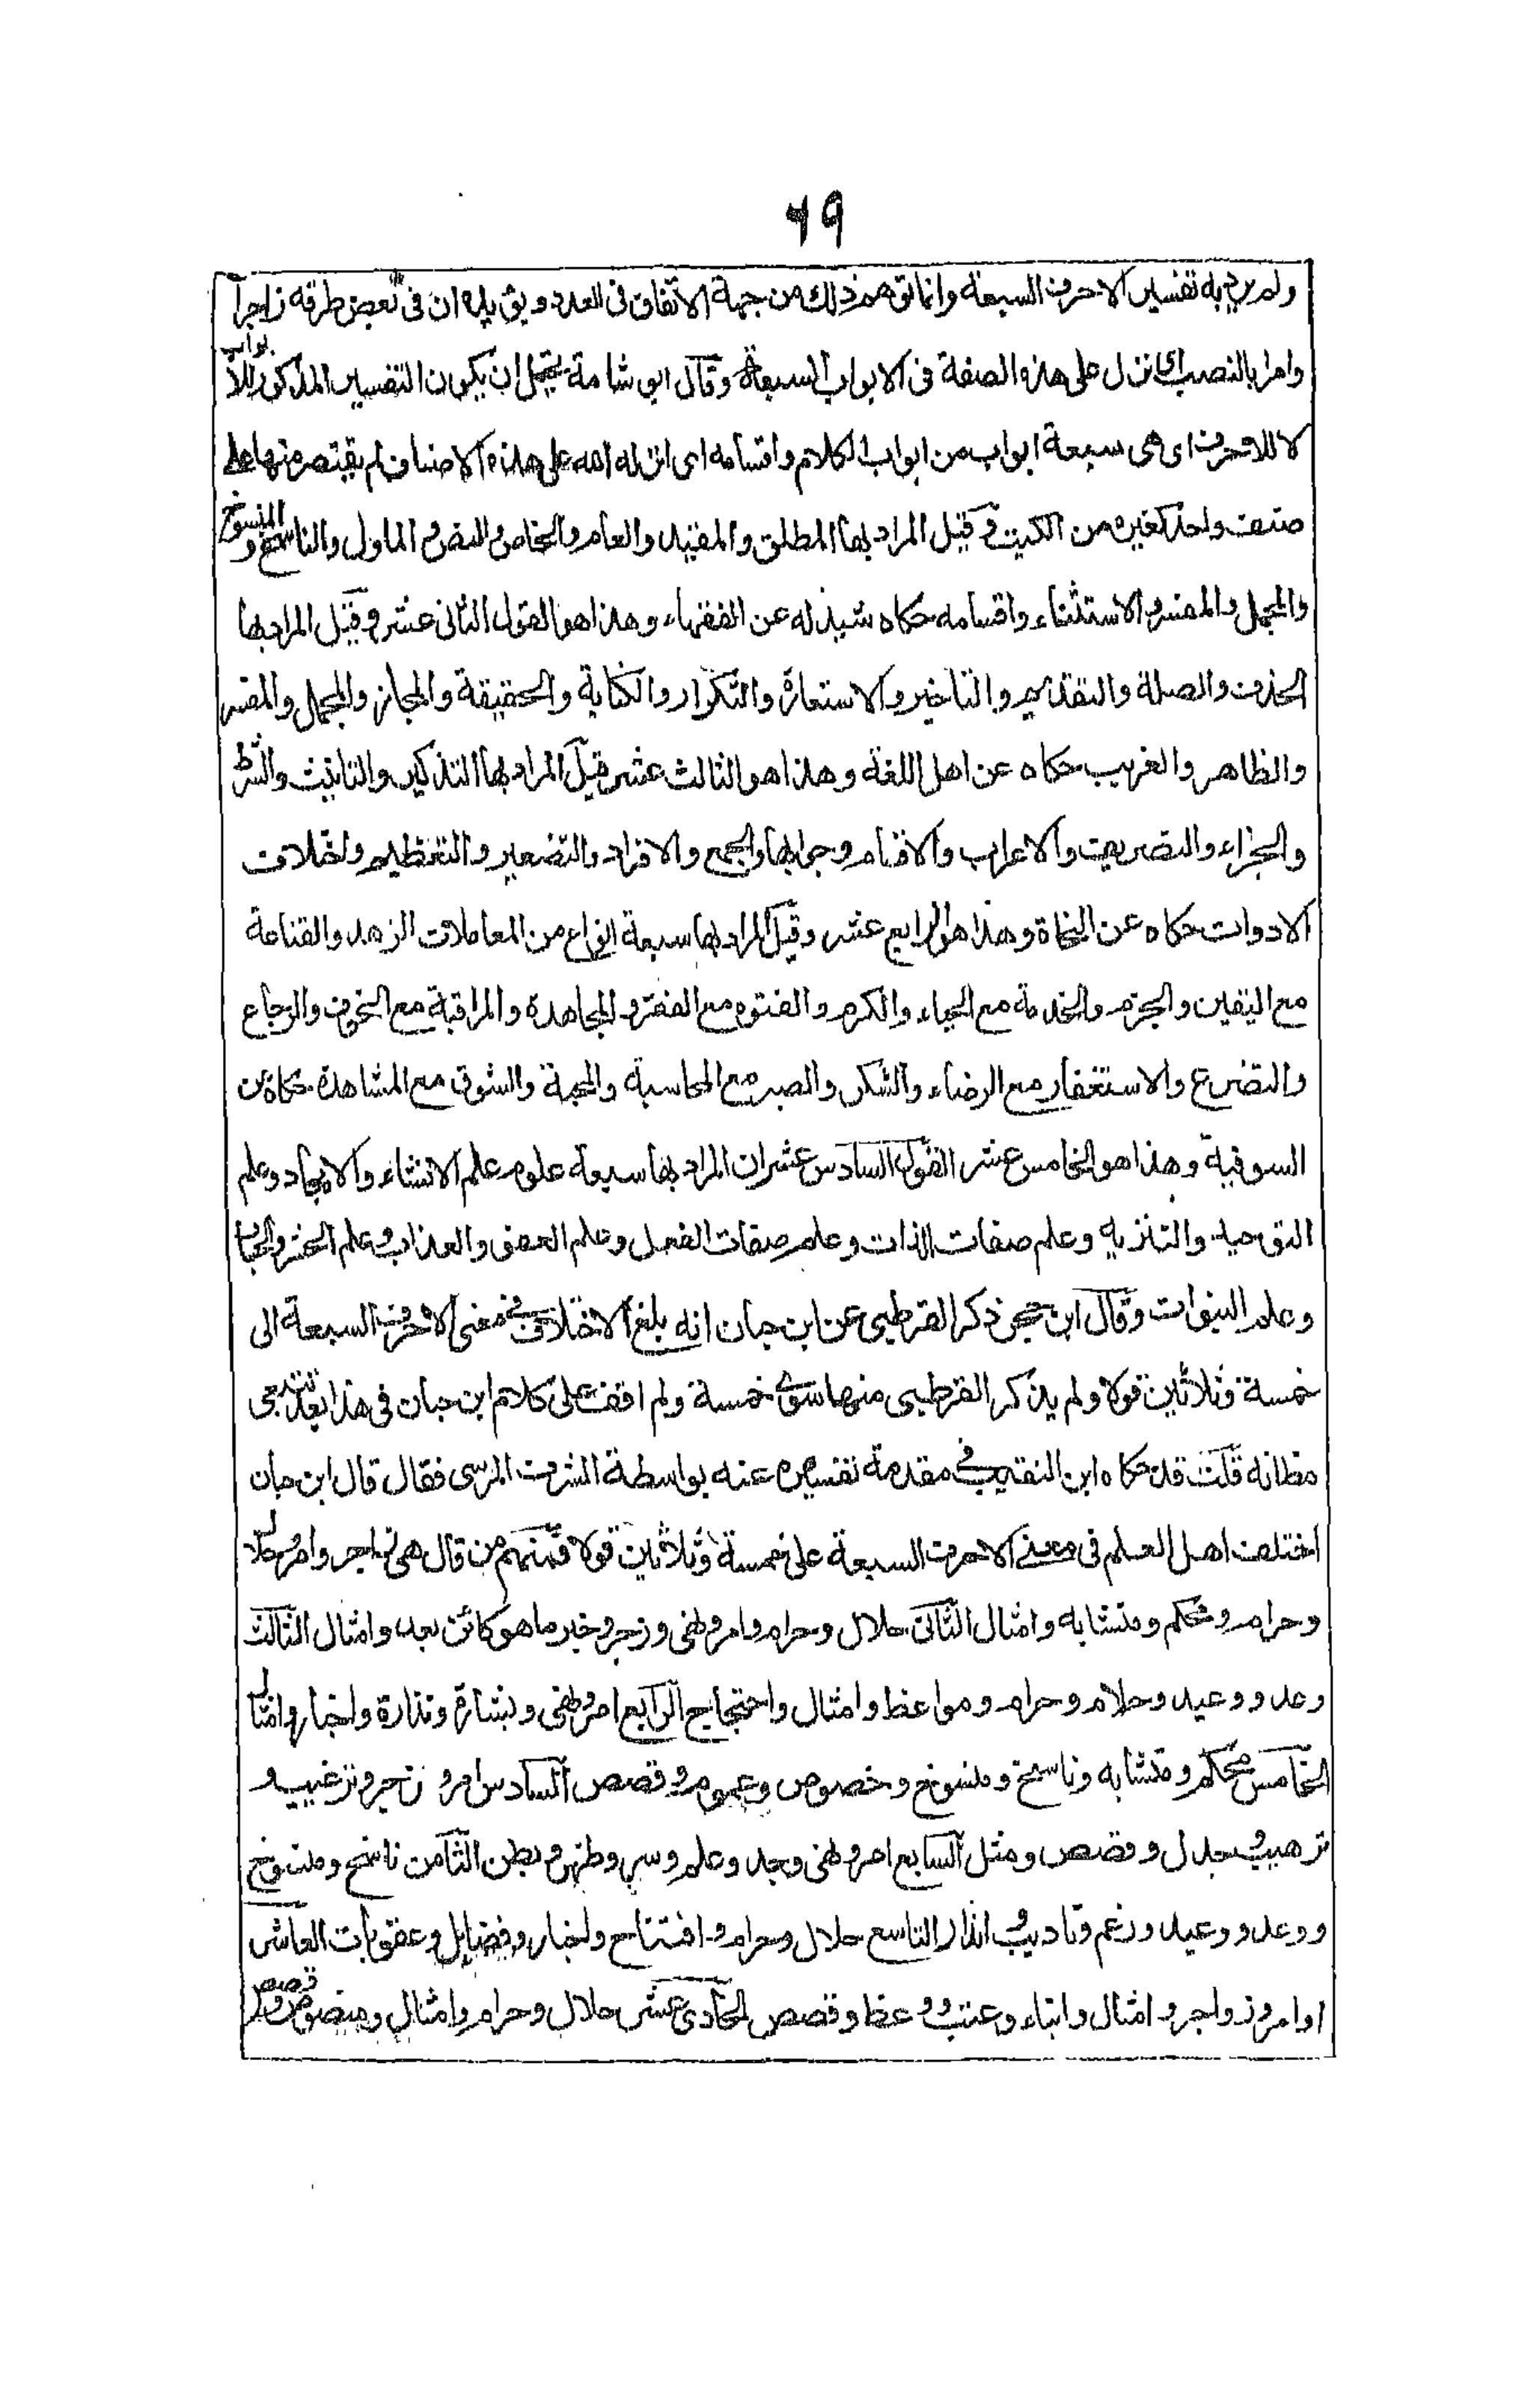 ٦٩
ولم يرد به تفسير الاحرف السبعة وانما توهم ذلك من جهة الاتفاق فى العدد ويؤيده ان فى بعض طرقه زاجرا
وامرا بالنصب اى نزل على هذه الصفة فى الابواب السبعة وقال ابو شامة يحتمل ان يكون التفسير المذكور للابواب
لا للاحرف اى هى سبعة ابواب من ابواب الكلام واقسامه اى انزله الله على هذه الاصناف لم يقتصر منها على
صنف واحد كغيره من الكتب وقيل المراد بها المطلق والمقيد والعام والخاص والنص والماول والناسخ والمنسوخ
والمجمل والمفسر والاستثناء واقسامه حكاه شيذله عن الفقهاء وهذا هو القول الثانى عشر وقيل المراد بها
الحذف والصلة والتقديم والتاخير والاستعارة والتكرار والكناية والحقيقة والمجاز والمجمل والمفسر
والظاهر والغريب حكاه عن اهل اللغة وهذا هو الثالث عشر قيل المراد بها التذكير والتانيث والشرط
والجزاء والتصريف والاعراب والاقسام وجوابها والجمع والافراد والتصغير والتعظيم واختلاف
الادوات حكاه عن النحاة وهذا هو الرابع عشر وقيل المراد بها سبعة انواع من المعاملات الزهد والقناعة
مع اليقين والجزم والخدمة مع الحياء والكرم والفتوه مع الفقر والمجاهدة والمراقبة مع الخوف والرجاع
والتضرع والاستغفار مع الرضاء والشكر والصبر مع المحاسبة والمحبة والشوق مع المشاهدة حكاه عن
السوفية وهذا هو الخامس عشر القول السادس عشر ان المراد بها سبعة علوم علم الانشاء والايجاد وعلم
التوحيد والتنزيه وعلم صفات الذات وعلم صفات الفعل وعلم العفو والعذاب وعلم الحشر والحساب
وعلم النبوات وقال ابن حجر ذكر القرطبى عن ابن حبان انه بلغ الاختلاف فى معنى الاحرف السبعة الى
خمسة وثلاثين قولا ولم يذكر القرطبى منها سوى خمسة ولم اقف على كلام ابن حبان فى هذا بعد تتبعى
مظانه قلت قد حكاه ابن النقيب فى مقدمة تفسيره عنه بواسطة الشرف المرسى فقال قال ابن حبان
اختلف اهل العلم فى معنى الاحرف السبعة على خمسة وثلاثين قولا فمنهم من قال هى زاجر وامر وحلال
وحرام ومحكم ومتشابه وامثال الثانى حلال وحرام وامر ونهى وزجر وخبر ما هو كائن بعد وامثال الثالث
وعد ووعيد وحلام وحرام ومواعظ وامثال واحتجاج الرابع امر ونهى وبشارة ونذارة واخبار وامثال
الخامس محكم ومتشابه وناسخ ومنسوخ وخصوص وعموم وقصص السادس امر و زجر وترغيب و
ترهيب وجدل وقصص ومثل السابع امر ونهى وجد وعلم وسر وظهر وبطن الثامن ناسخ ومنسوخ
ووعد ووعيد ورغم وتاديب وانذار التاسع حلال وحرام و افتتاح واخبار وفضايل وعقوبات العاشر
اوامر وزواجر و امثال وانباء وعتب ووعظ وقصص الحادى عشر حلال وحرام وامثال ومنصوص وقصص